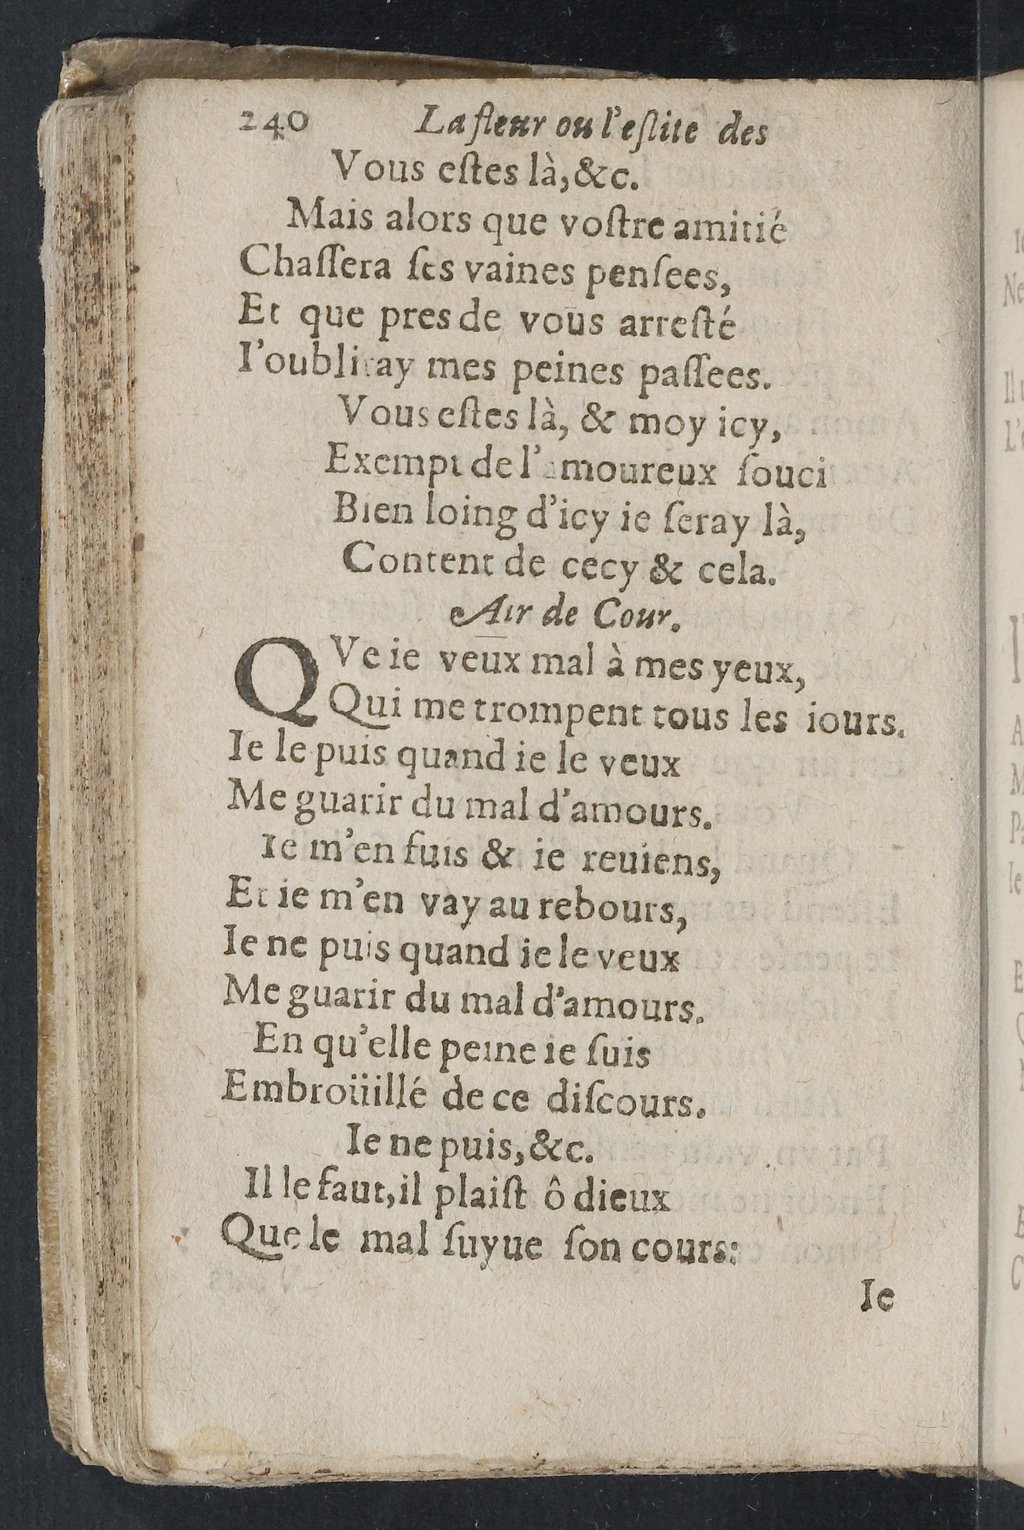 240 La fleur ou l'eſlite des
Vous eſtes là, &c.
Mais alors que voſtre amitié
Chaſſera ſes vaines penſees,
Et que pres de vous arreſté
I'oubliray mes peines paſſees.
Vous eſtes là, & moy icy,
Exempt de l'amoureux ſouci
Bien loing d'icy ie ſeray là,
Content de cecy & cela.
Air de Cour.
QVe ie veux mal à mes yeux,
Qui me trompent tous les iours.
Ie le puis quand ie le veux
Me guarir du mal d'amours.
Ie m'en fuis & ie reuiens,
Et ie m'en vay au rebours,
Ie ne puis quand ie le veux
Me guarir du mal d'amours.
En qu'elle peine ie ſuis
Embroüillé de ce diſcours.
Ie ne puis, &c.
Il le faut, il plaiſt ô dieux
Que le mal ſuyue ſon cours:
Ie